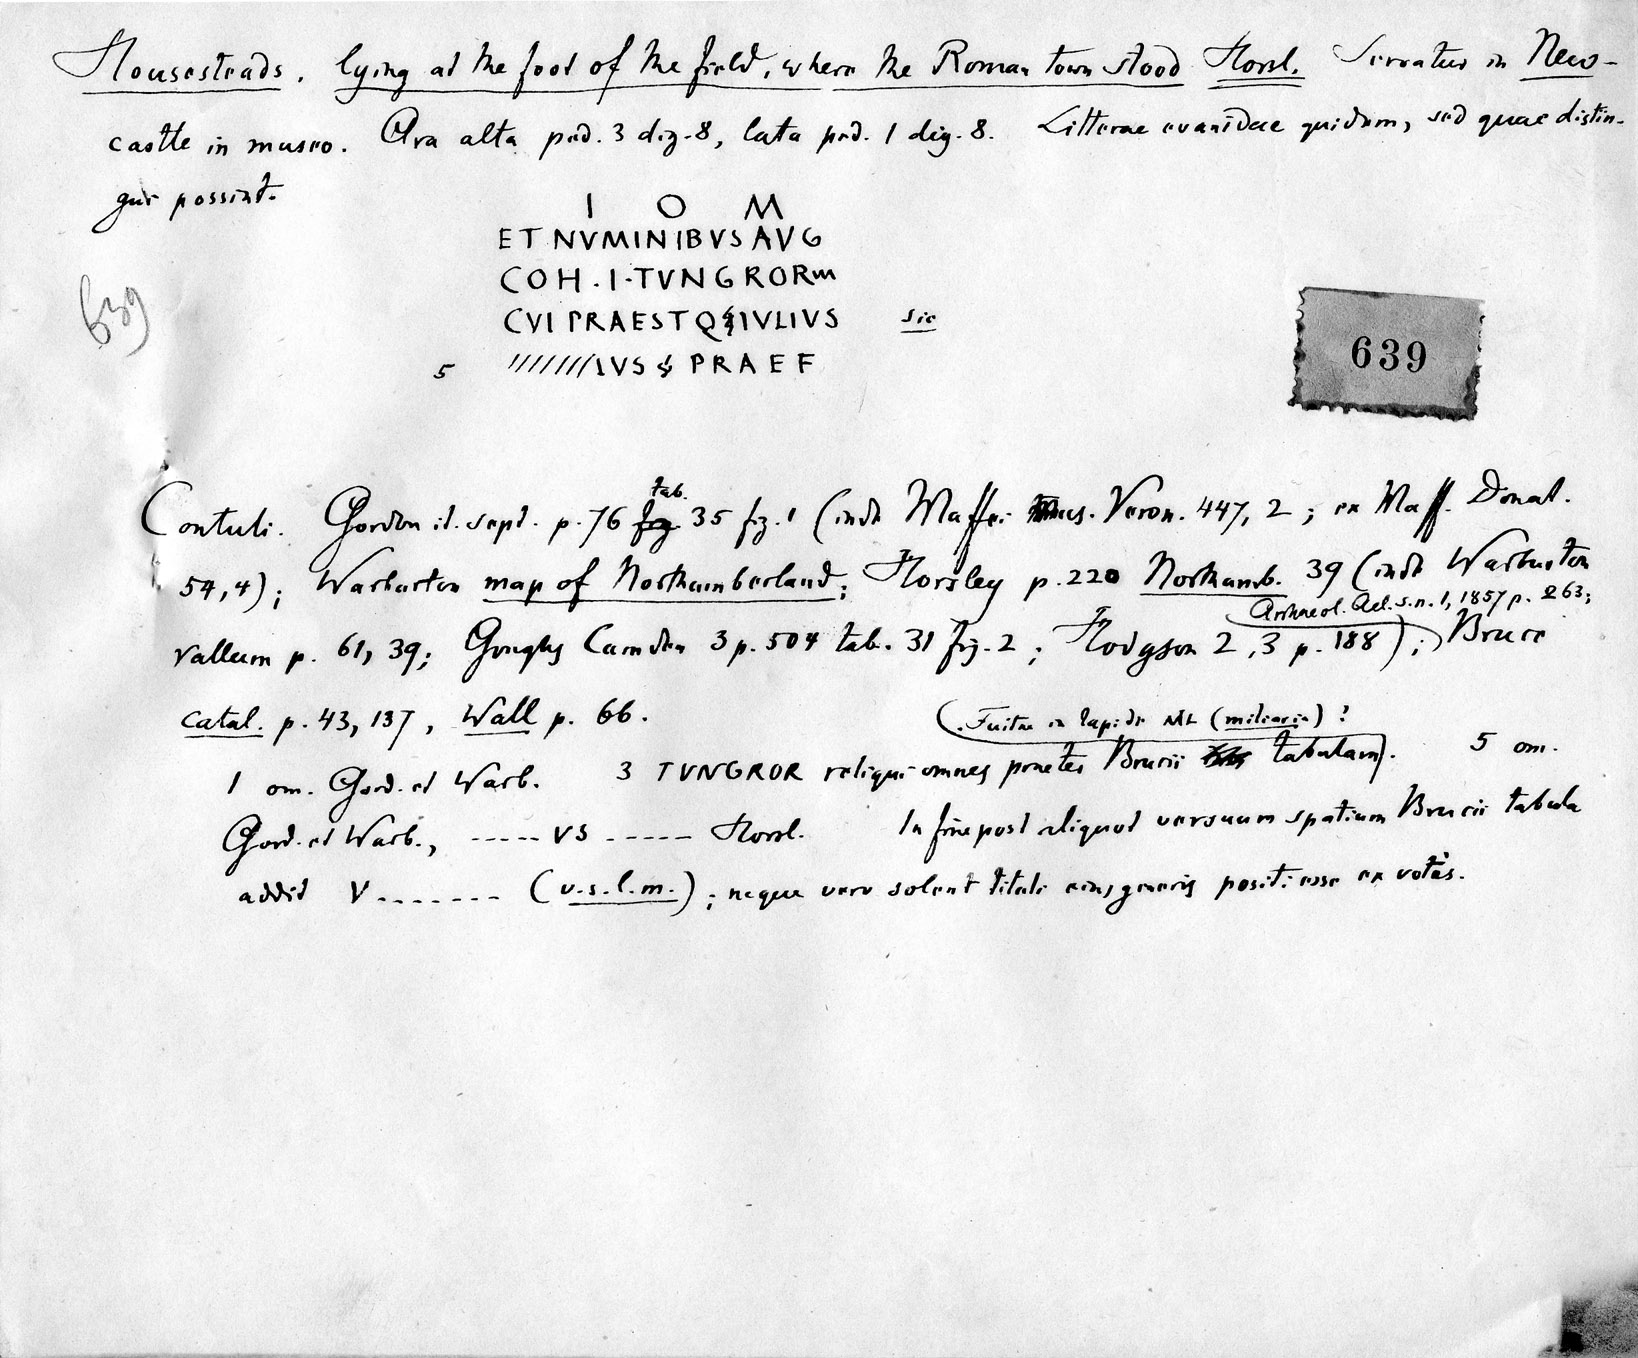 Housesteads. lying at the foot of the field, where the Roman town stood Horsl. Servatur in New-
castle in museo. Ara alta ped. 3 dig. 8, lata ped. 1 dig. 8. Litterae evanidae quidem, sed quae distin-
gui possint.
I O M
ET NVMINIBVS AVG
COH . I . TVNGRORm
CVI PRAEST Q IVLIVS sic
5 ////////IVS PRAEF
639
639
Contuli. Gordon it. sept. p. 76 tab. 35 fig. 1 (inde Maffei mus. Veron. 447, 2; ex Maff. Donat.
54, 4); Warburton map of Northumberland; Horsley p. 220 Northumb. 39 (inde Warburton
Archaeol. Ael. s.n. 1, 1857 p. 263;
vallum p. 61, 39; Goughs Camden 3 p. 504 tab. 31 fig. 2; Hodgson 2, 3 p. 188); Bruce
catal. p. 43, 137, Wall p. 66.
(Fuitne in lapide ML (miliaria)?
1 om. Gord. et Warb. 3 TVNGROR reliqui omnes praeter Brucii tabulam). 5 om.
Gord. et Warb., ----- VS ----- Horsl. In fine post aliquot versuum spatium Brucii tabula
addit V ------- (v.s.l.m.); neque vero solent tituli eius generis positi esse ex votis.